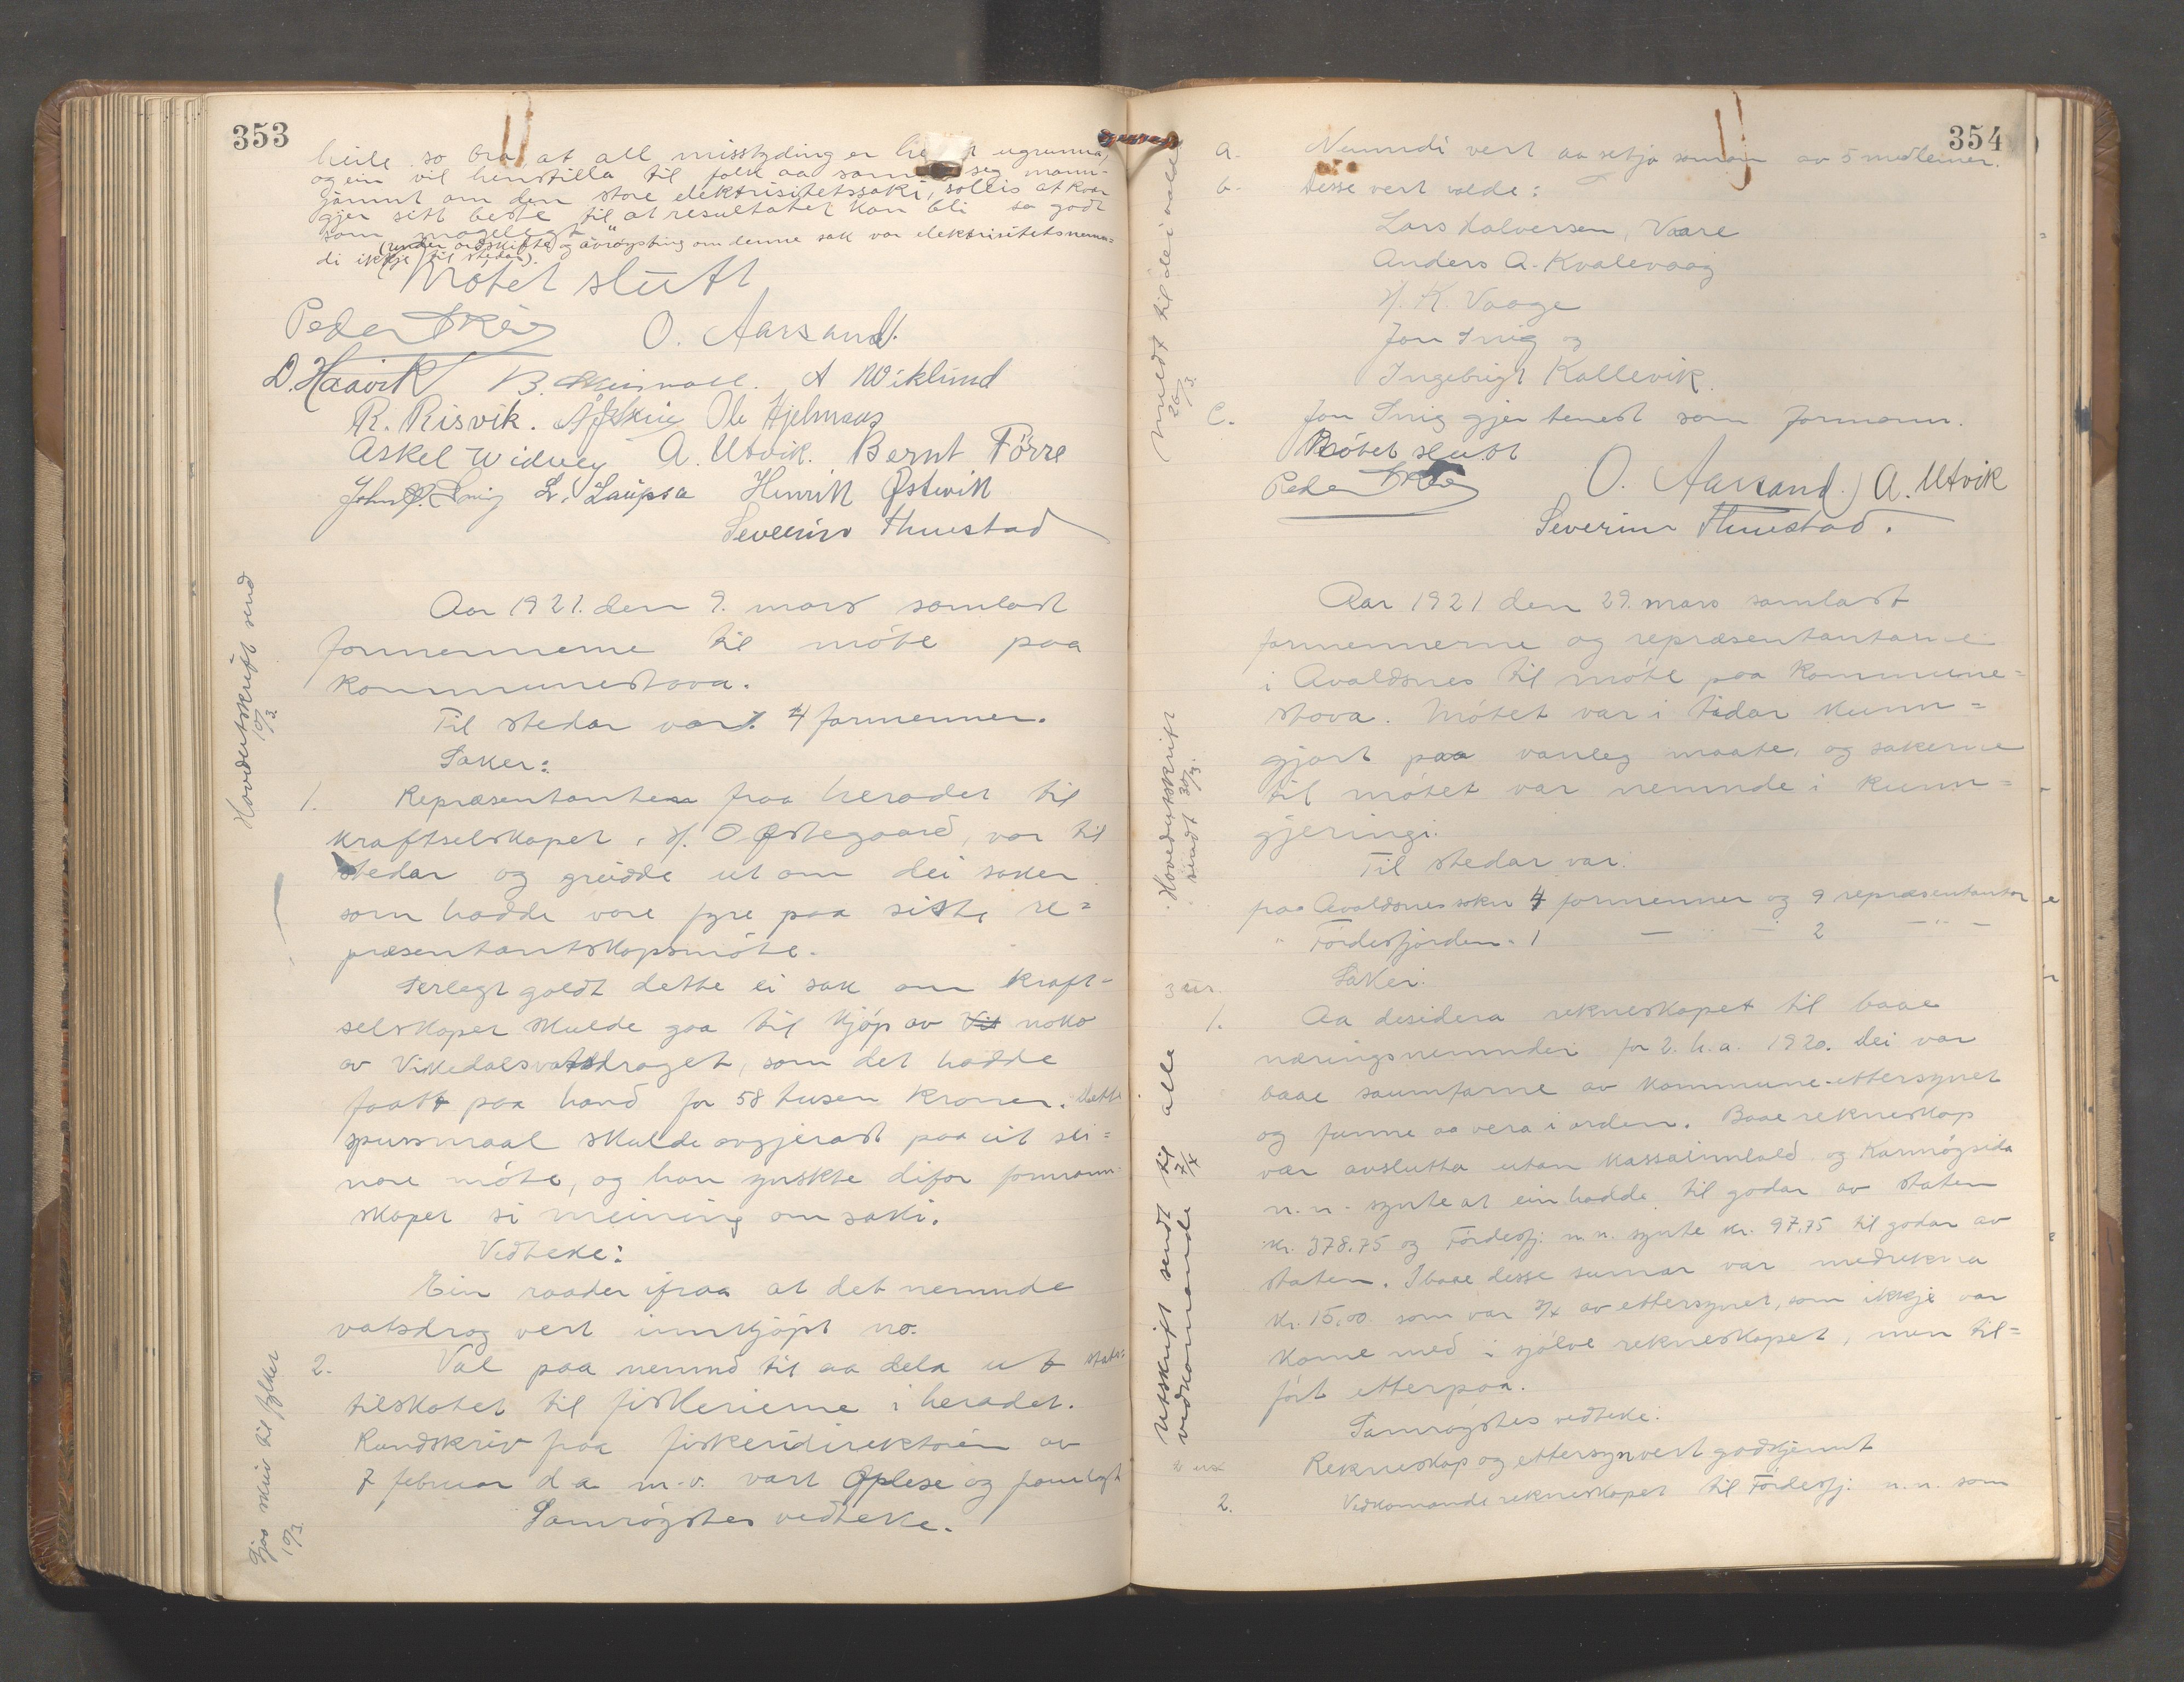 353
heile so bra at all misstyding er ugrunna,
og ein vil henstilla til folk aa seg mann-
jamnt om den store elektrisitetssaki, sollis at kvar
gjer sitt beste til at resultatet kan bli so godt
som mogelegt"
(under ordskifte og avrøysting om denne sak var elektrisitetsnemn=
di ikkje til stedar).
Møtet slutt
Peder O. Aarsand.
D. Haavik B. A Wiklund
R. Risvik. Ole Hjelmaas
Askel Widvey A. Utvik. Bernt Förre
John L. Laupsa Henrik Østevik
Severin Thuestad
Hovedutskrift send
10/3.
Aar 1921. den 9. mars samlast
formennerne til møte paa
kommunestova.
Til stedar var: 4 formenner.
Saker:
1. Repræsentanten fraa heradet til
kraftselskapet, H. O Østegaard, var til
stedar og greidde ut om dei saker
som hadde vore fyre paa siste re=
præsentantskapsmøte.
Serlegt galdt dette ei sak om kraft-
selskapet skulde gaa til kjøp av Vik noko
av Vikedalsvatsdraget, som det hadde
faatt paa hand for 58 tusen kroner. Dette
spursmaal skulde avgjerast paa eit sei=
nare møte, og han ynskte difor formann-
skapet si meining om saki.
Vedteke:
Ein raader ifraa at det nemnde
vatsdrag vert innkjøpt no.
Gjev skriv til fylket
10/3.
2. Val paa nemnd til aa dela ut stats-
tilskotet til fiskerierne i heradet.
Rundskriv fraa fiskeridirektøren av
7 februar d a m.v. vart oplese og framlagt
Samrøystes vedteke.
354
a. Nemndi vert aa setja saman av 5 medlemer.
b. Desse vert valde:
Lars Halversen, Vaare
Anders A. Kvalevaag
H. K. Vaage
Jon Snig og
Ingebrigt Kallevik.
c. Jon Snig gjer tenest som formann.
Møtet slutt
Peder O. Aarsand. A. Utvik
Severin Thuestad.
Meldt til dei valde
26/3.
Aar 1921 den 29. mars samlast
formennerne og repræsentantarne
i Avaldsnes til møte paa kommune=
stova. Møtet var i tidar kunn=
gjort paa vanleg maate, og sakerne
til møtet var nemnde i kunn=
gjeringi.
Hovedutskrift
sendt 30/3.
Til stedar var:
fraa Avaldsnes sokn 4 formenner og 9 repræsentantar
" Førdesfjorden - 1 — " — 2 — " —
Saker:
3 utr.
1. Aa desidera rekneskapet til baae
næringsnemnder for 2. h.a. 1920. Dei var
baae saumfarne av kommune-ettersynet
og funne aa vera i orden. Baae rekneskap
var avslutta utan kassainnhald og Karmøysida
n.n. synte at ein hadde til godar av staten
kr. 378.75 og Førdesfj: n.n. synte kr. 97.75 til godar av
staten. I baae desse sumar var medrekna
kr. 15.00 som var 3/4 av ettersynet, som ikkje var
kome med i sjølve rekneskapet, men til=
ført etterpaa.
Samrøystes vedteke:
Rekneskap og ettersyn vert godkjennt
2. Vedkomande rekneskapet til Førdesfj: n.n. som
Utskrift sendt til alle
vedkomande 7/4